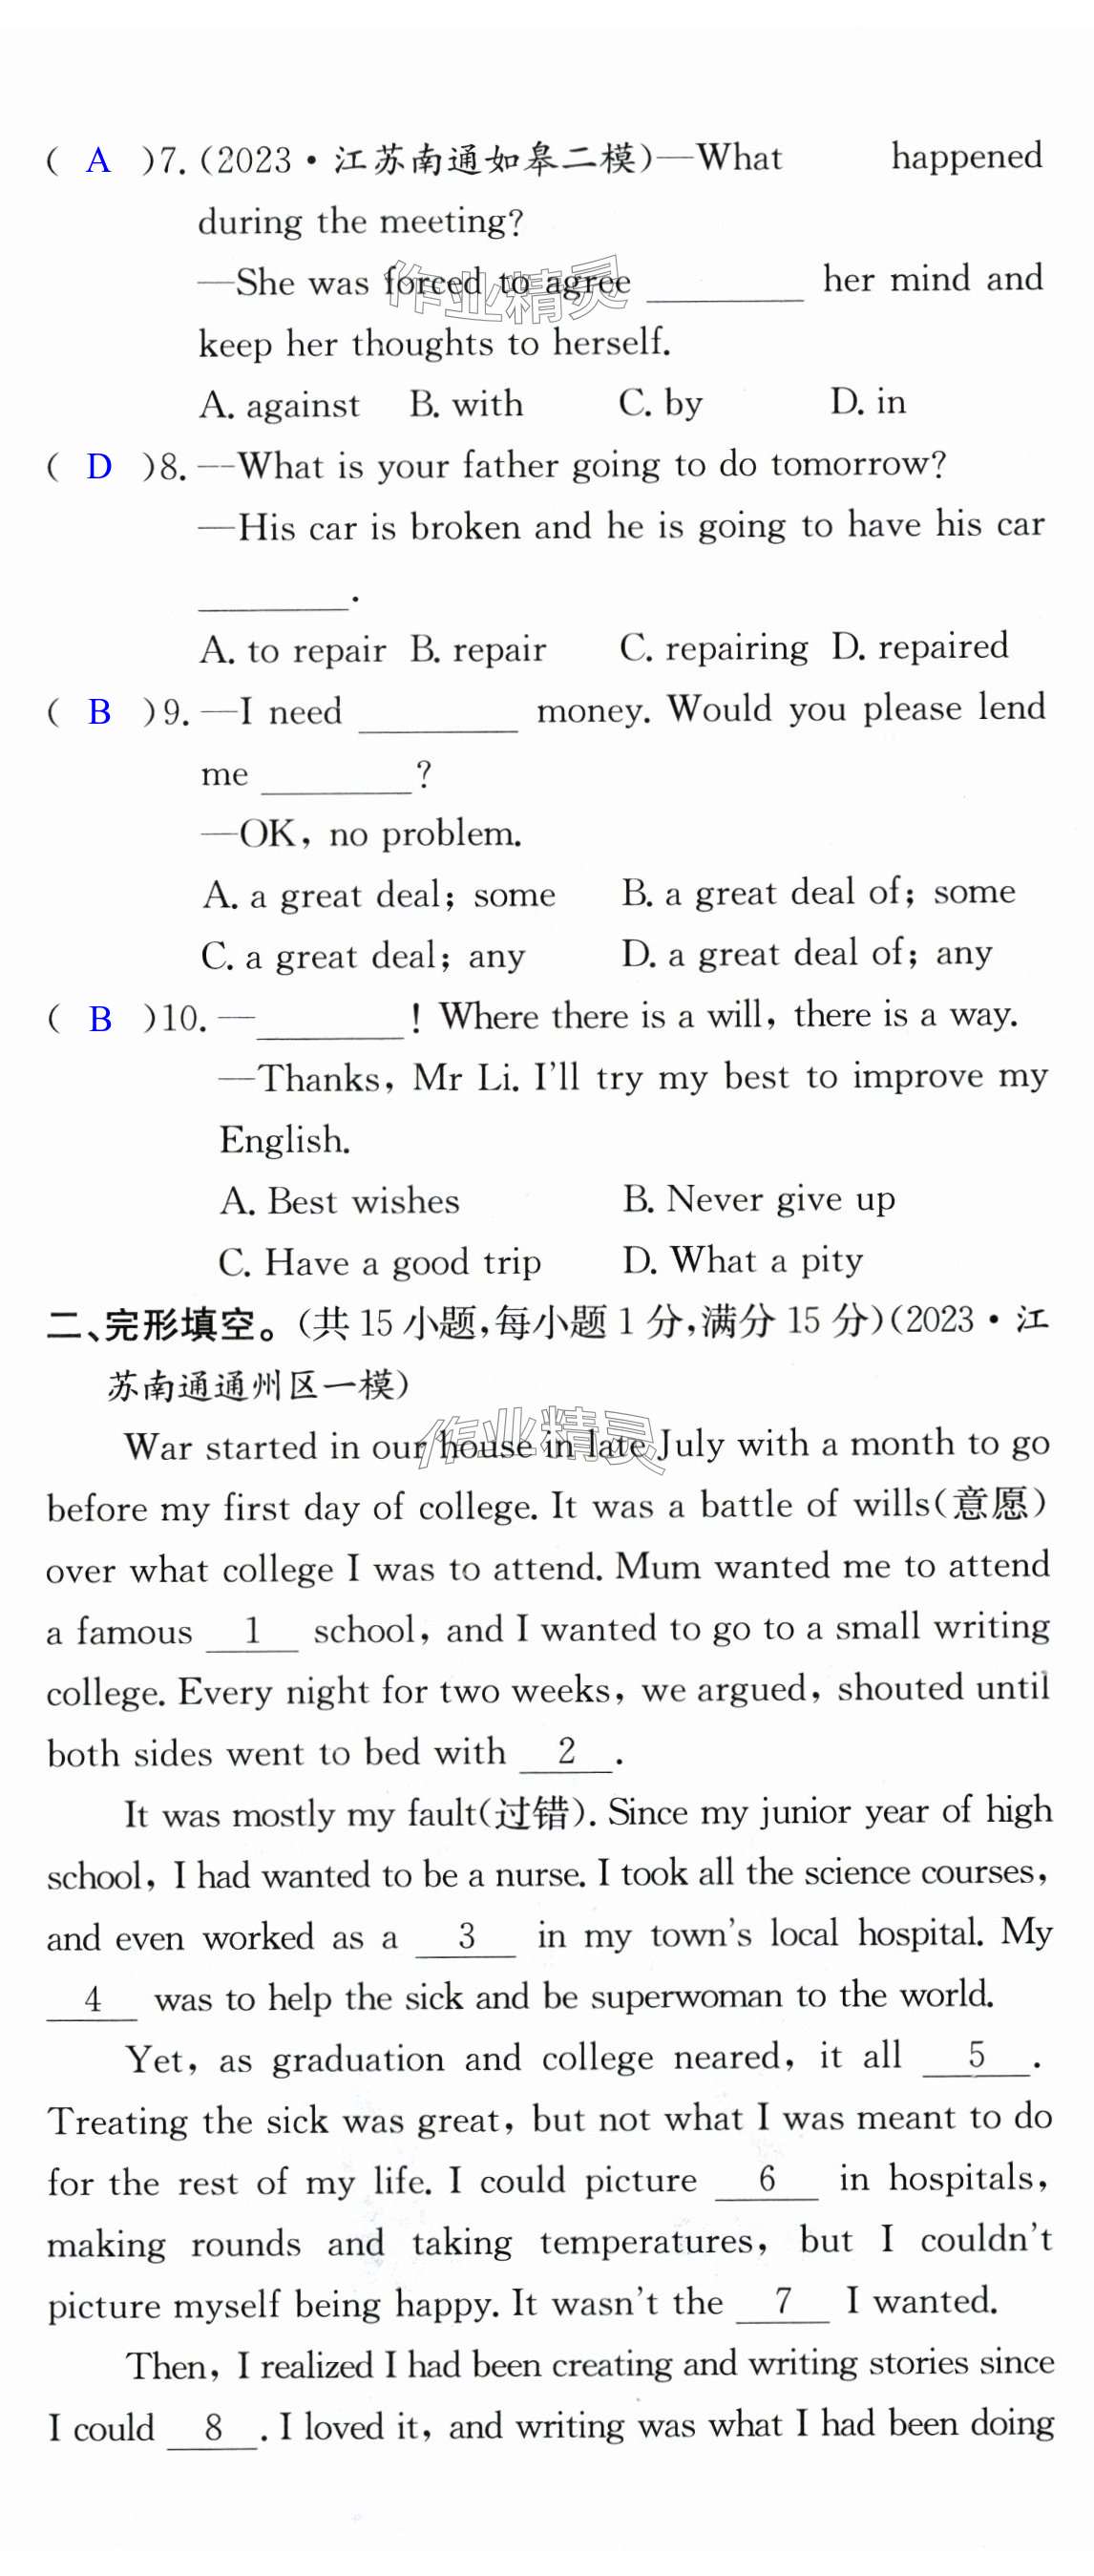 ( A )7.(2023·江苏南通如皋二模)—What happened
during the meeting?
—She was forced to agree ________ her mind and
keep her thoughts to herself.
A. against B. with C. by D. in
( D )8.—What is your father going to do tomorrow?
—His car is broken and he is going to have his car
________.
A. to repair B. repair C. repairing D. repaired
( B )9.—I need ________ money. Would you please lend
me ________?
—OK, no problem.
A. a great deal; some B. a great deal of; some
C. a great deal; any D. a great deal of; any
( B )10.—________! Where there is a will, there is a way.
—Thanks, Mr Li. I'll try my best to improve my
English.
A. Best wishes B. Never give up
C. Have a good trip D. What a pity
二、完形填空。(共 15 小题,每小题 1 分,满分 15 分)(2023·江
苏南通通州区一模)
War started in our house in late July with a month to go
before my first day of college. It was a battle of wills(意愿)
over what college I was to attend. Mum wanted me to attend
a famous 1 school, and I wanted to go to a small writing
college. Every night for two weeks, we argued, shouted until
both sides went to bed with 2 .
It was mostly my fault(过错). Since my junior year of high
school, I had wanted to be a nurse. I took all the science courses,
and even worked as a 3 in my town's local hospital. My
4 was to help the sick and be superwoman to the world.
Yet, as graduation and college neared, it all 5 .
Treating the sick was great, but not what I was meant to do
for the rest of my life. I could picture 6 in hospitals,
making rounds and taking temperatures, but I couldn't
picture myself being happy. It wasn't the 7 I wanted.
Then, I realized I had been creating and writing stories since
I could 8 . I loved it, and writing was what I had been doing
作业精灵
作业精灵